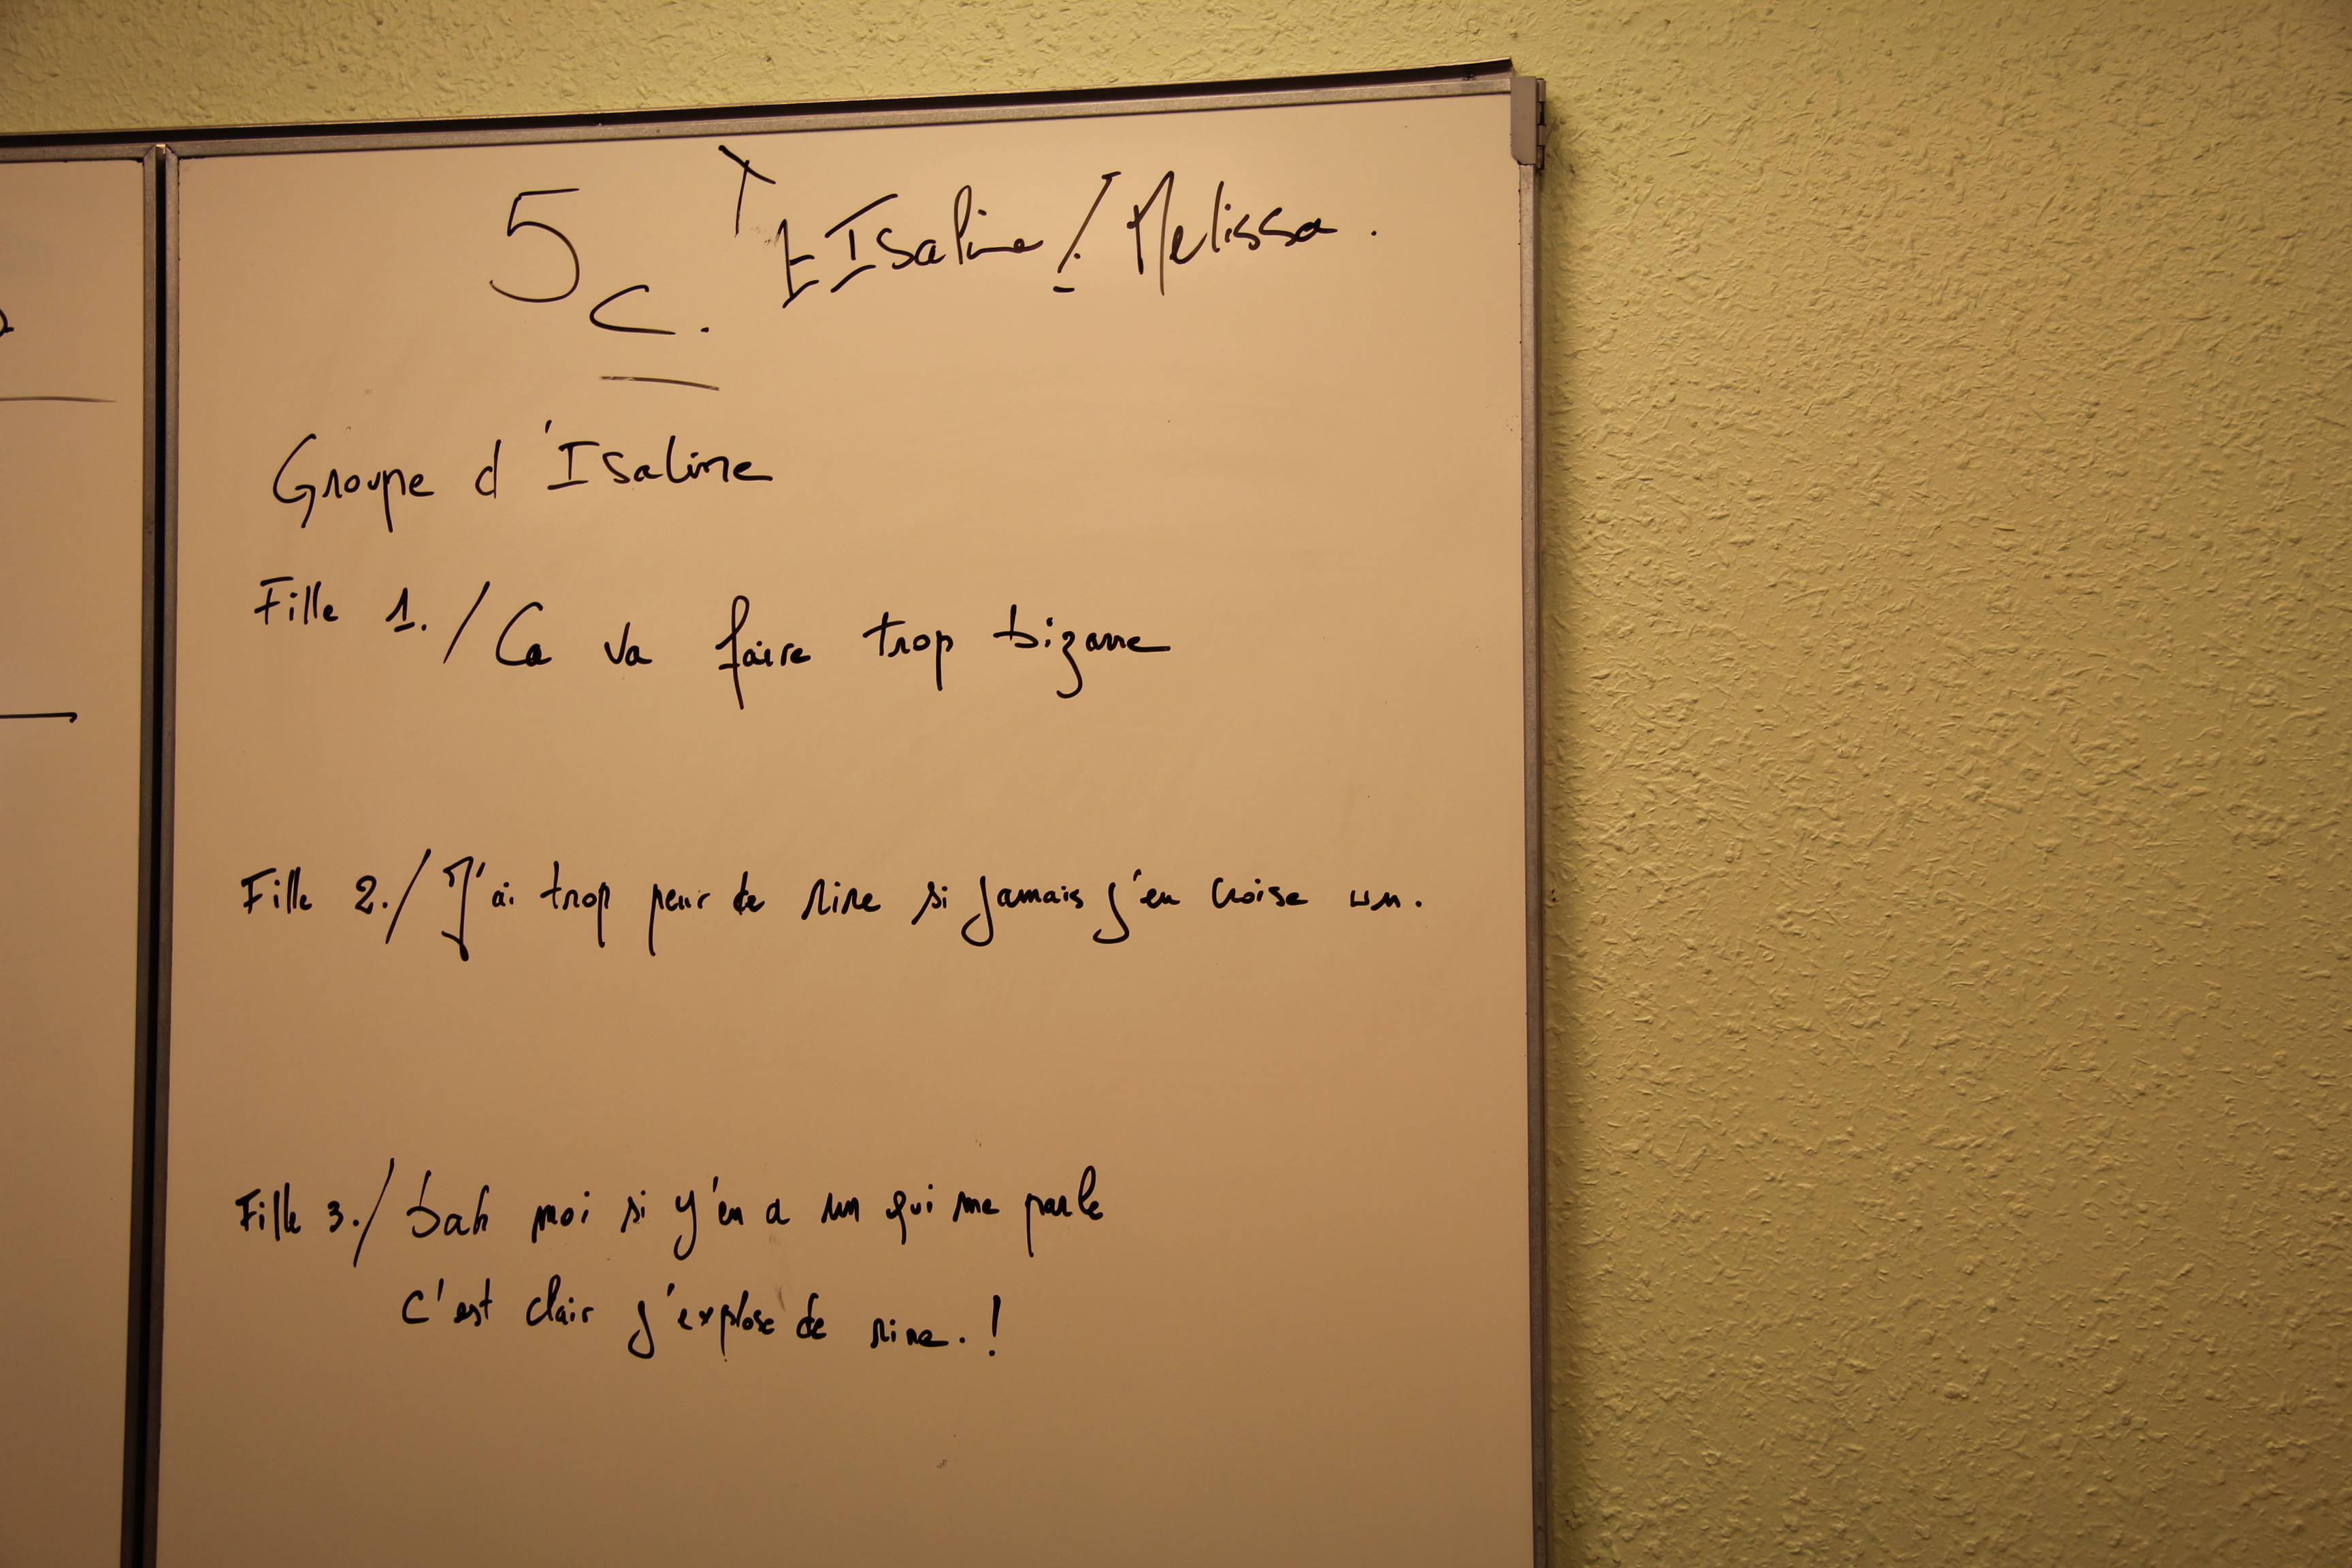 5c. Isaline / Melissa.
Groupe d'Isaline
Fille 1./ Ca va faire trop bizarre
Fille 2./ J'ai trop peur de rire si jamais j'en croise un.
Fille 3./ bah moi si y'en a un qui me parle
c'est clair j'explose de rire.!